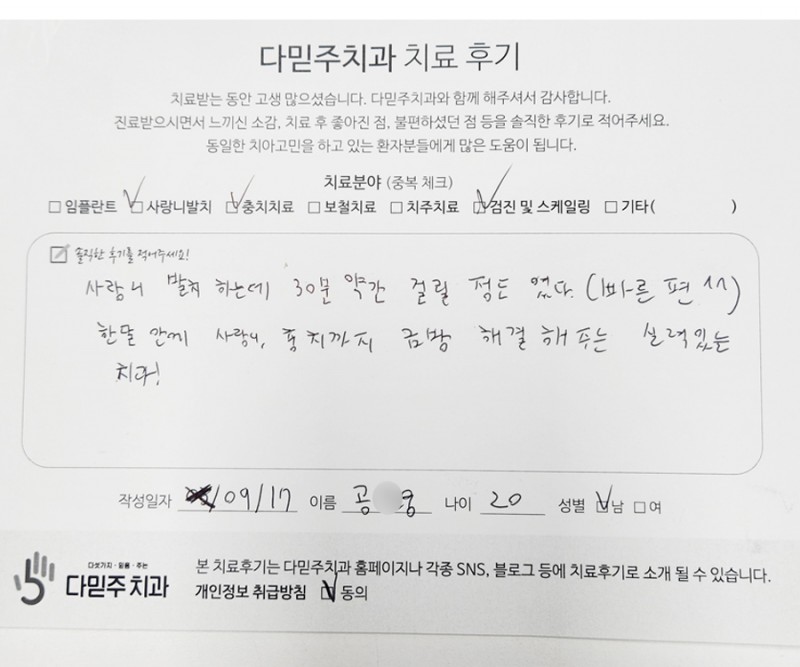 다믿주치과 치료 후기
치료받는 동안 고생 많으셨습니다. 다믿주치과와 함께 해주셔서 감사합니다.
진료받으시면서 느끼신 소감, 치료 후 좋아진 점, 불편하셨던 점 등을 솔직한 후기로 적어주세요.
동일한 치아고민을 하고 있는 환자분들에게 많은 도움이 됩니다.
치료분야 (중복 체크)
□ 임플란트 ☑ 사랑니발치 ☑ 충치치료 □ 보철치료 □ 치주치료 ☑ 검진 및 스케일링 □ 기타 ( )
솔직한 후기를 적어주세요!
사랑니 발치 하는데 30분 약간 걸릴 정도 였다. (빠른 편 ^^)
한달 안에 사랑니, 충치까지 금방 해결해 주는 실력있는
치과!
작성일자 /09/17 이름 공 나이 20 성별 ☑ 남 □ 여
다섯가지·믿음·주는
다믿주치과
본 치료후기는 다믿주치과 홈페이지나 각종 SNS, 블로그 등에 치료후기로 소개 될 수 있습니다.
개인정보 취급방침 ☑ 동의